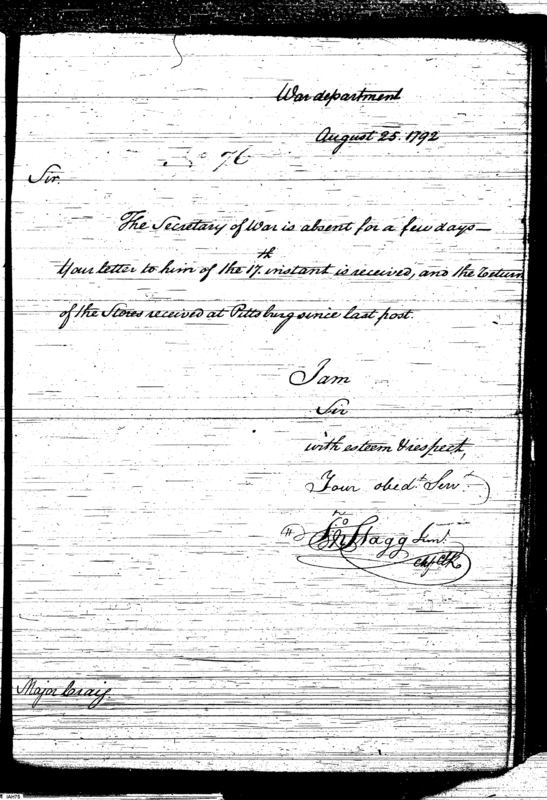 War department
August 25. 1792
No 76
Sir.
The Secretary of War is absent for a few days—
Your letter to him of the 17.th instant is received, and the return
of the Stores received at Pittsburg since last post.
I am
Sir
with esteem & respect,
Your obedt Servt
Jno Stagg Junr
Chf Clk
Major Craig.